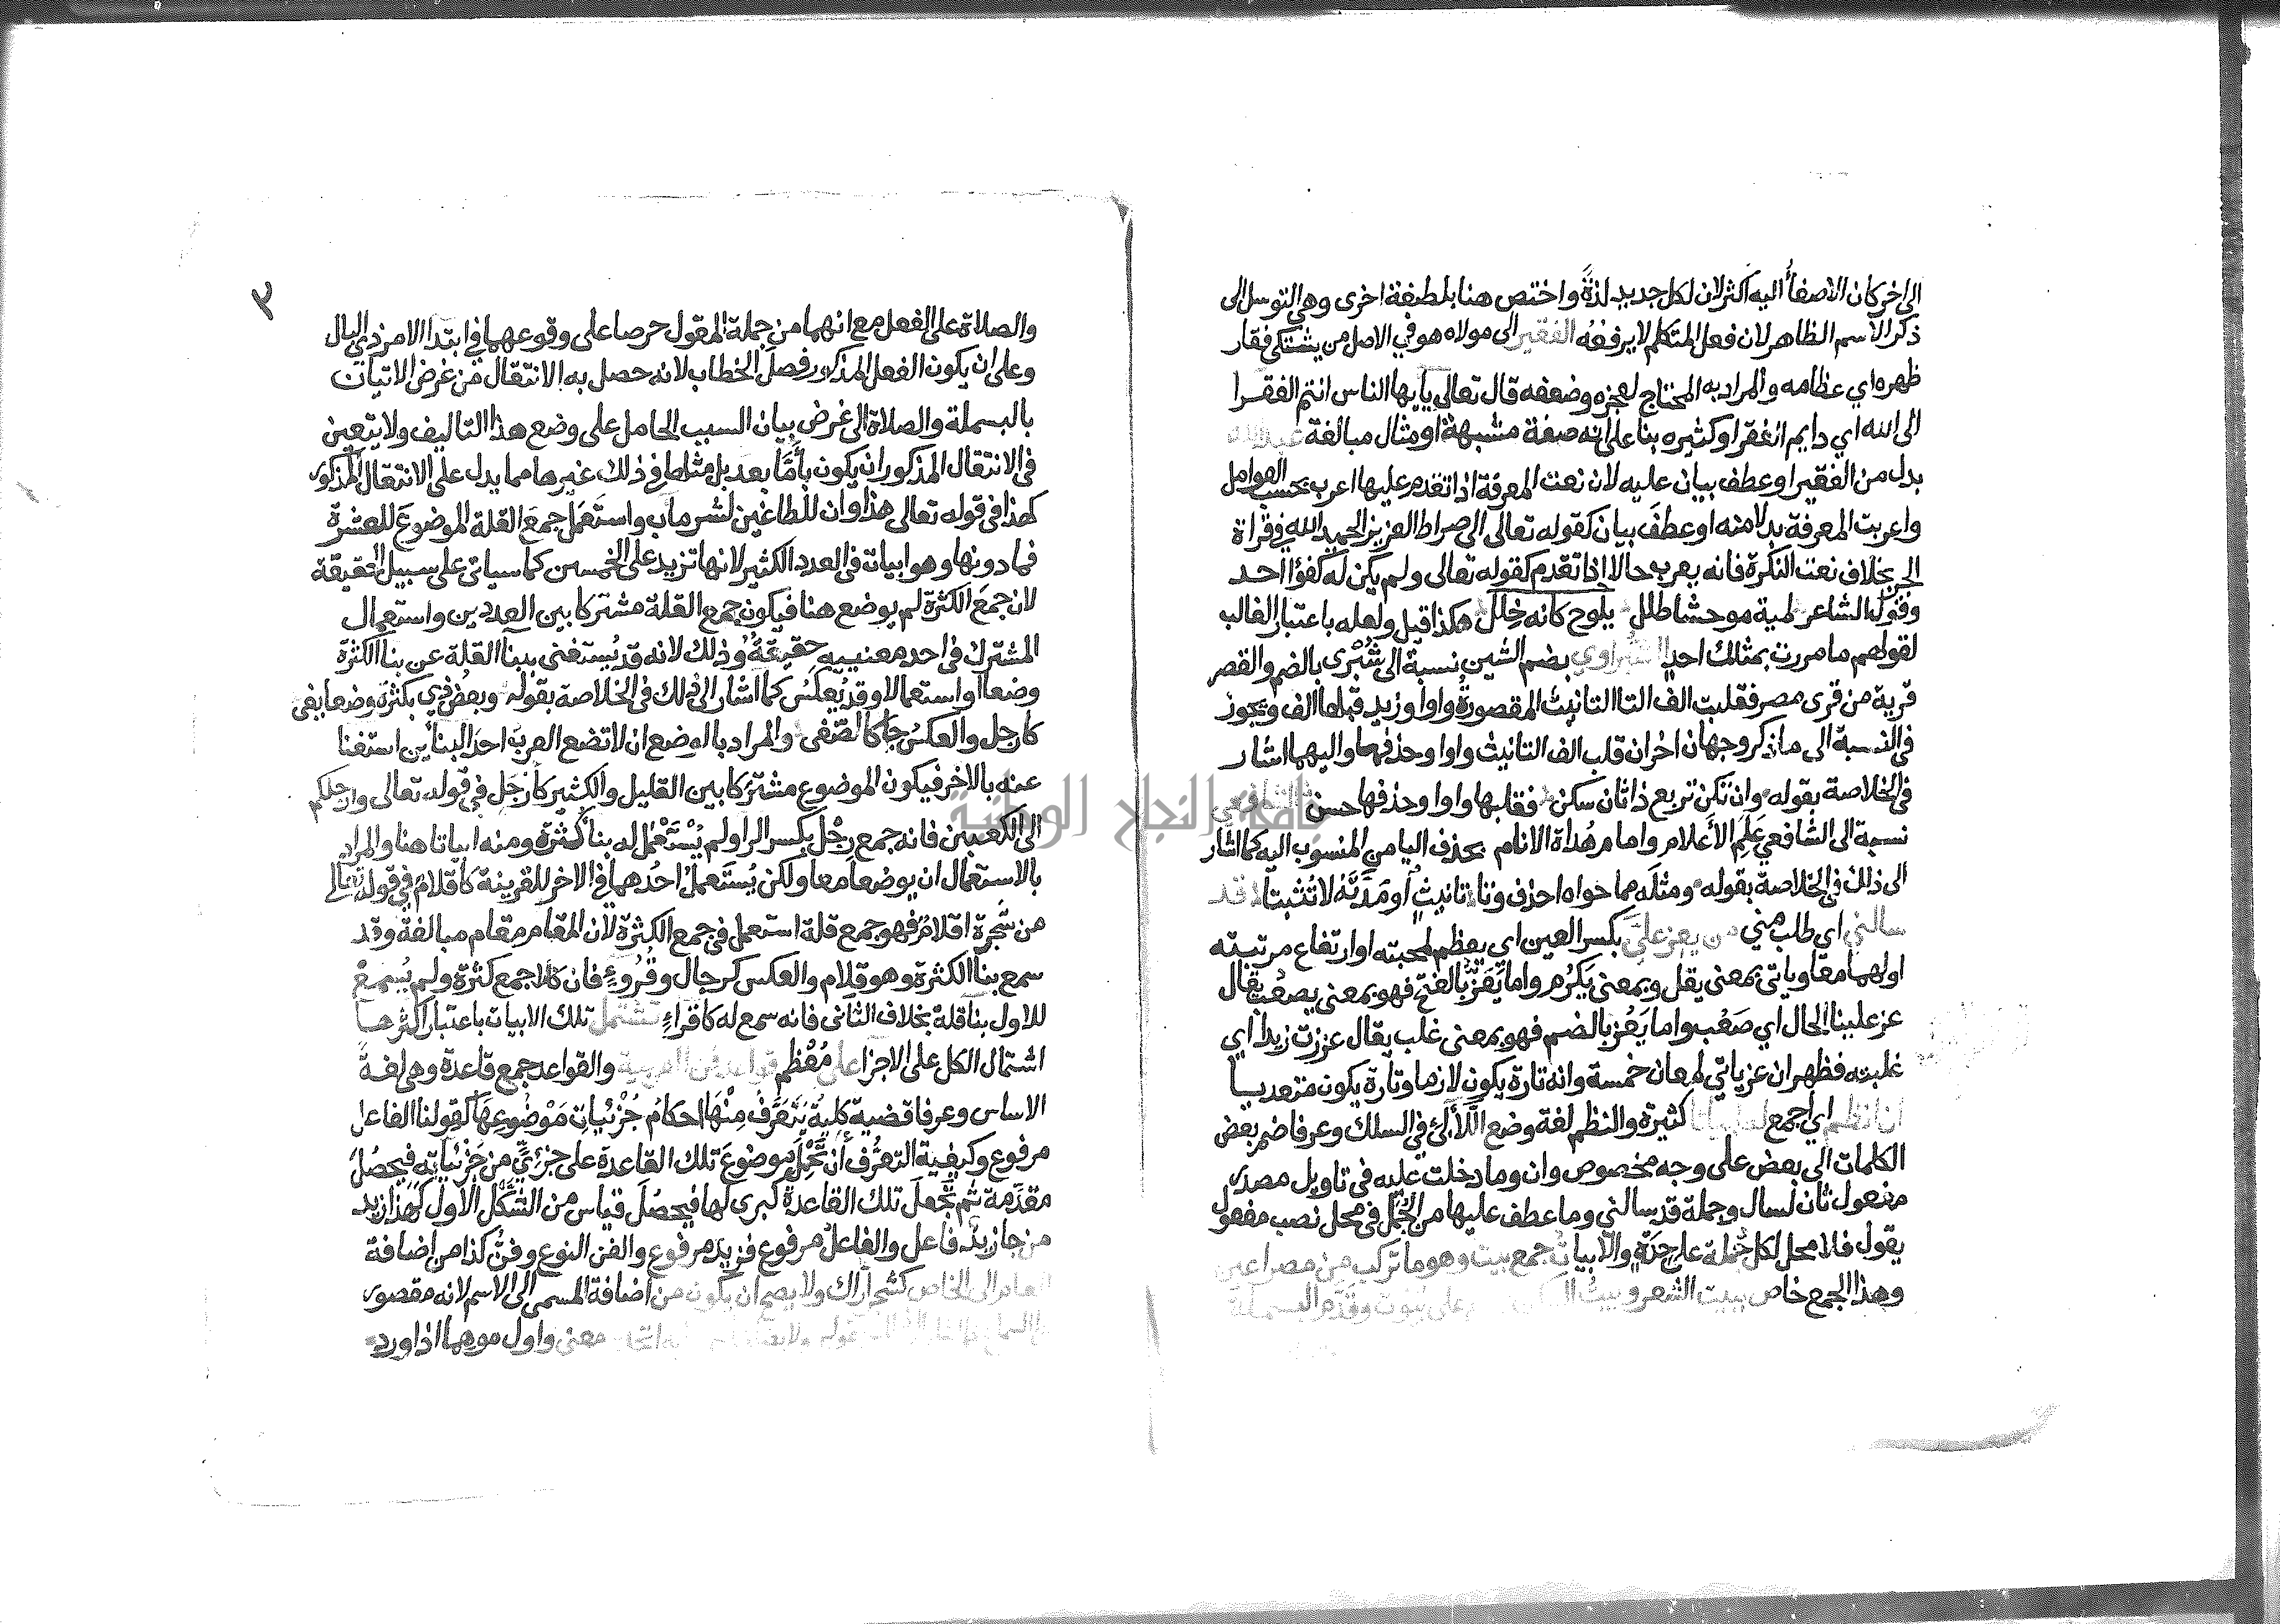 الى اخر كان الاصغأ اليه اكثر لان لكل جديد لذةً واختص هنا بلطيفة اخرى وهي التوسل الى
ذكر الاسم الظاهر لان فعل المتكلم لا يرفعُه الفقير الى مولاه هو في الاصل من يشتكي فقار
ظهره اي عظامه والمراد به المحتاج لعجزه وضعفه قال تعالى يايها الناس انتم الفقرا
الى الله اي دايم الفقر او كثيره بنا على انه صفة مشبهة او مثال مبالغة عبد الله
بدل من الفقير او عطف بيان عليه لان نعت المعرفة اذا تقدم عليها اعرب بحسب العوامل
واعربت المعرفة بدلا منه او عطفَ بيان كقوله تعالى الى صراط العزيز الحميد الله في قراة
الجر بخلاف نعت النكرة فانه يعرب حالا اذا تقدم كقوله تعالى ولم يكن له كفؤا احد
وقول الشاعر لمية موحشا طلل يلوح كانه خِلل هكذا قيل ولعله باعتبار الغالب
لقولهم ما مررت بمثلك احدٍ الشبراوي بضم الشين نسبة الى شُبْرى بالضم والقصر
قرية من قرى مصر فقلبت الف التا التانيث المقصورة واوا وزيد قبلها الف وتجوز
في النسبة الى ما ذكر وجهان اخران قلب الف التانيث واوا وحذفها واليهما اشار
في الخلاصة بقوله وان تكن تربع ذا ثان سكن فقلبها واوا وحذفها حسن الشافعي
نسبة الى الشافعي عَلَمِ الأعلام وامام هُداة الانام بحذف اليا من المنسوب اليه كما اشار
الى ذلك في الخلاصة بقوله ومثلَه مما حواه احذف وتا تانيثٍ أو مَدتَهُ لا تُثبتا قد
سالني اي طلب مني من يعز عليَّ بكسر العين اي يعظم لمحبته او ارتفاع مرتبته
او لهما معا وياتي بمعنى يقل وبمعنى يَكرُم واما يَعَزُّ بالفتح فهو بمعنى يصعُب يقال
عز علينا الحال اي صَعُب واما يَعُز بالضم فهو بمعنى غلب يقال عززت زيدا اي
غلبته فظهر ان عز ياتي لمعان خمسة وانه تارة يكون لازما وتارة يكون متعديا
ان انظم اي اجمع له ابياتا كثيرة والنظم لغة وضع اللآلئ في السلك وعرفا ضم بعض
الكلمات الى بعض على وجه مخصوص وان وما دخلت عليه في تاويل مصدر
مفعول ثان لسال وجملة قد سالني وما عطف عليها من الجُمَل في محل نصب مفعول
يقول فلا محل لكل جُملة على حِدَةٍ والابيات جمع بيت وهو ما تركب من مصراعين
وهذا الجمع خاص ببيت الشعر وبيتُ على بيوت وقدَّم البسملة
٣
والصلاة على الفعل مع انهما من جملة المقول حرصا على وقوعهما في ابتدا الامر ذي البال
وعلى ان يكون الفعل المذكور فصلَ الخطاب لانه حصل به الانتقال من غرض الاتيان
بالبسملة والصلاة الى غرض بيان السبب الحامل على وضع هذا التاليف ولا يتعين
في الانتقال المذكور ان يكون بأمَّا بعد بل مثلها في ذلك غيرها مما يدل على الانتقال المذكور
كهذا في قوله تعالى هذا وان للطاغين لشر ماب واستَعمَل جمعَ القلة الموضوعَ للعشرة
فما دونها وهو ابيات في العدد الكثير لانها تزيد على الخمسين كما سياتي على سبيل الحقيقة
لان جمعَ الكثرة لم يوضع هنا فيكون جمع القلة مشتركا بين العددين واستعمال
المشترك في احد معنييه حقيقةٌ وذلك لانه قد يُستغنى ببنا القلة عن بنا الكثرة
وضعا او استعمالا وقد يُعكسُ كما اشار الى ذلك في الخلاصة بقوله وبعض ذي بكثرة وضعا يفي
كارجل والعكسُ جا كالصُّفي والمراد بالوضع ان لا تضع العربَ احدَ البنائين استغنا
عنه بالاخر فيكون الموضوع مشتركا بين القليل والكثير كأرْجل في قوله تعالى وارجلكم
الى الكعبين فانه جمع رِجْل بكسر الرا ولم يُسْتَعْمل له بنا كثرة ومنه ابياتا هنا والمراد
بالاستعمال ان يوضعا معا ولكن يُستَعملُ احدُهما في الاخر للقرينة كاقلام في قوله تعالى
من شجرة اقلامٌ فهو جمع قلة استعمل في جمع الكثرة لان المقام مقام مبالغة وقد
سمع بنا الكثرة وهو قلام والعكس كرجال وقُروءٍ فان كلا جمع كثرة ولم يُسمعْ
للاول بنا قلة بخلاف الثاني فانه سمع له كاقراءٍ تشتمل تلك الابيات باعتبار اكثرها
اشتمال الكل على الاجزا على مُعْظم قواعد فن العربية والقواعد جمع قاعدة وهي لغةً
الاساس وعرفا قضية كليةٌ يُتَعَرَّفُ مِنْهَا احكامُ جُزْئياتِ مَوْضُوعِهَا كقولنا الفاعل
مرفوع وكيفية التعرُّف أن تَحْمِلَ موضوعَ تلك القاعدة على جزئيٍّ من جُزْئياته فيحصُل
مقدِّمة ثم تجعلَ تلك القاعدةَ كبرى لها فيحصُلَ قياس من الشكْل الاول كهذا زيد
من جا زيدٌ فاعل والفاعلُ مرفوع فزيد مرفوع والفن النوع وفنُّ كذا من اضافة
العام الى الخاص كشجر اراك ولا يصح ان يكون من اضافة المسمى الى الاسم لانه مقصور
معنى واول موهما اذا ورد